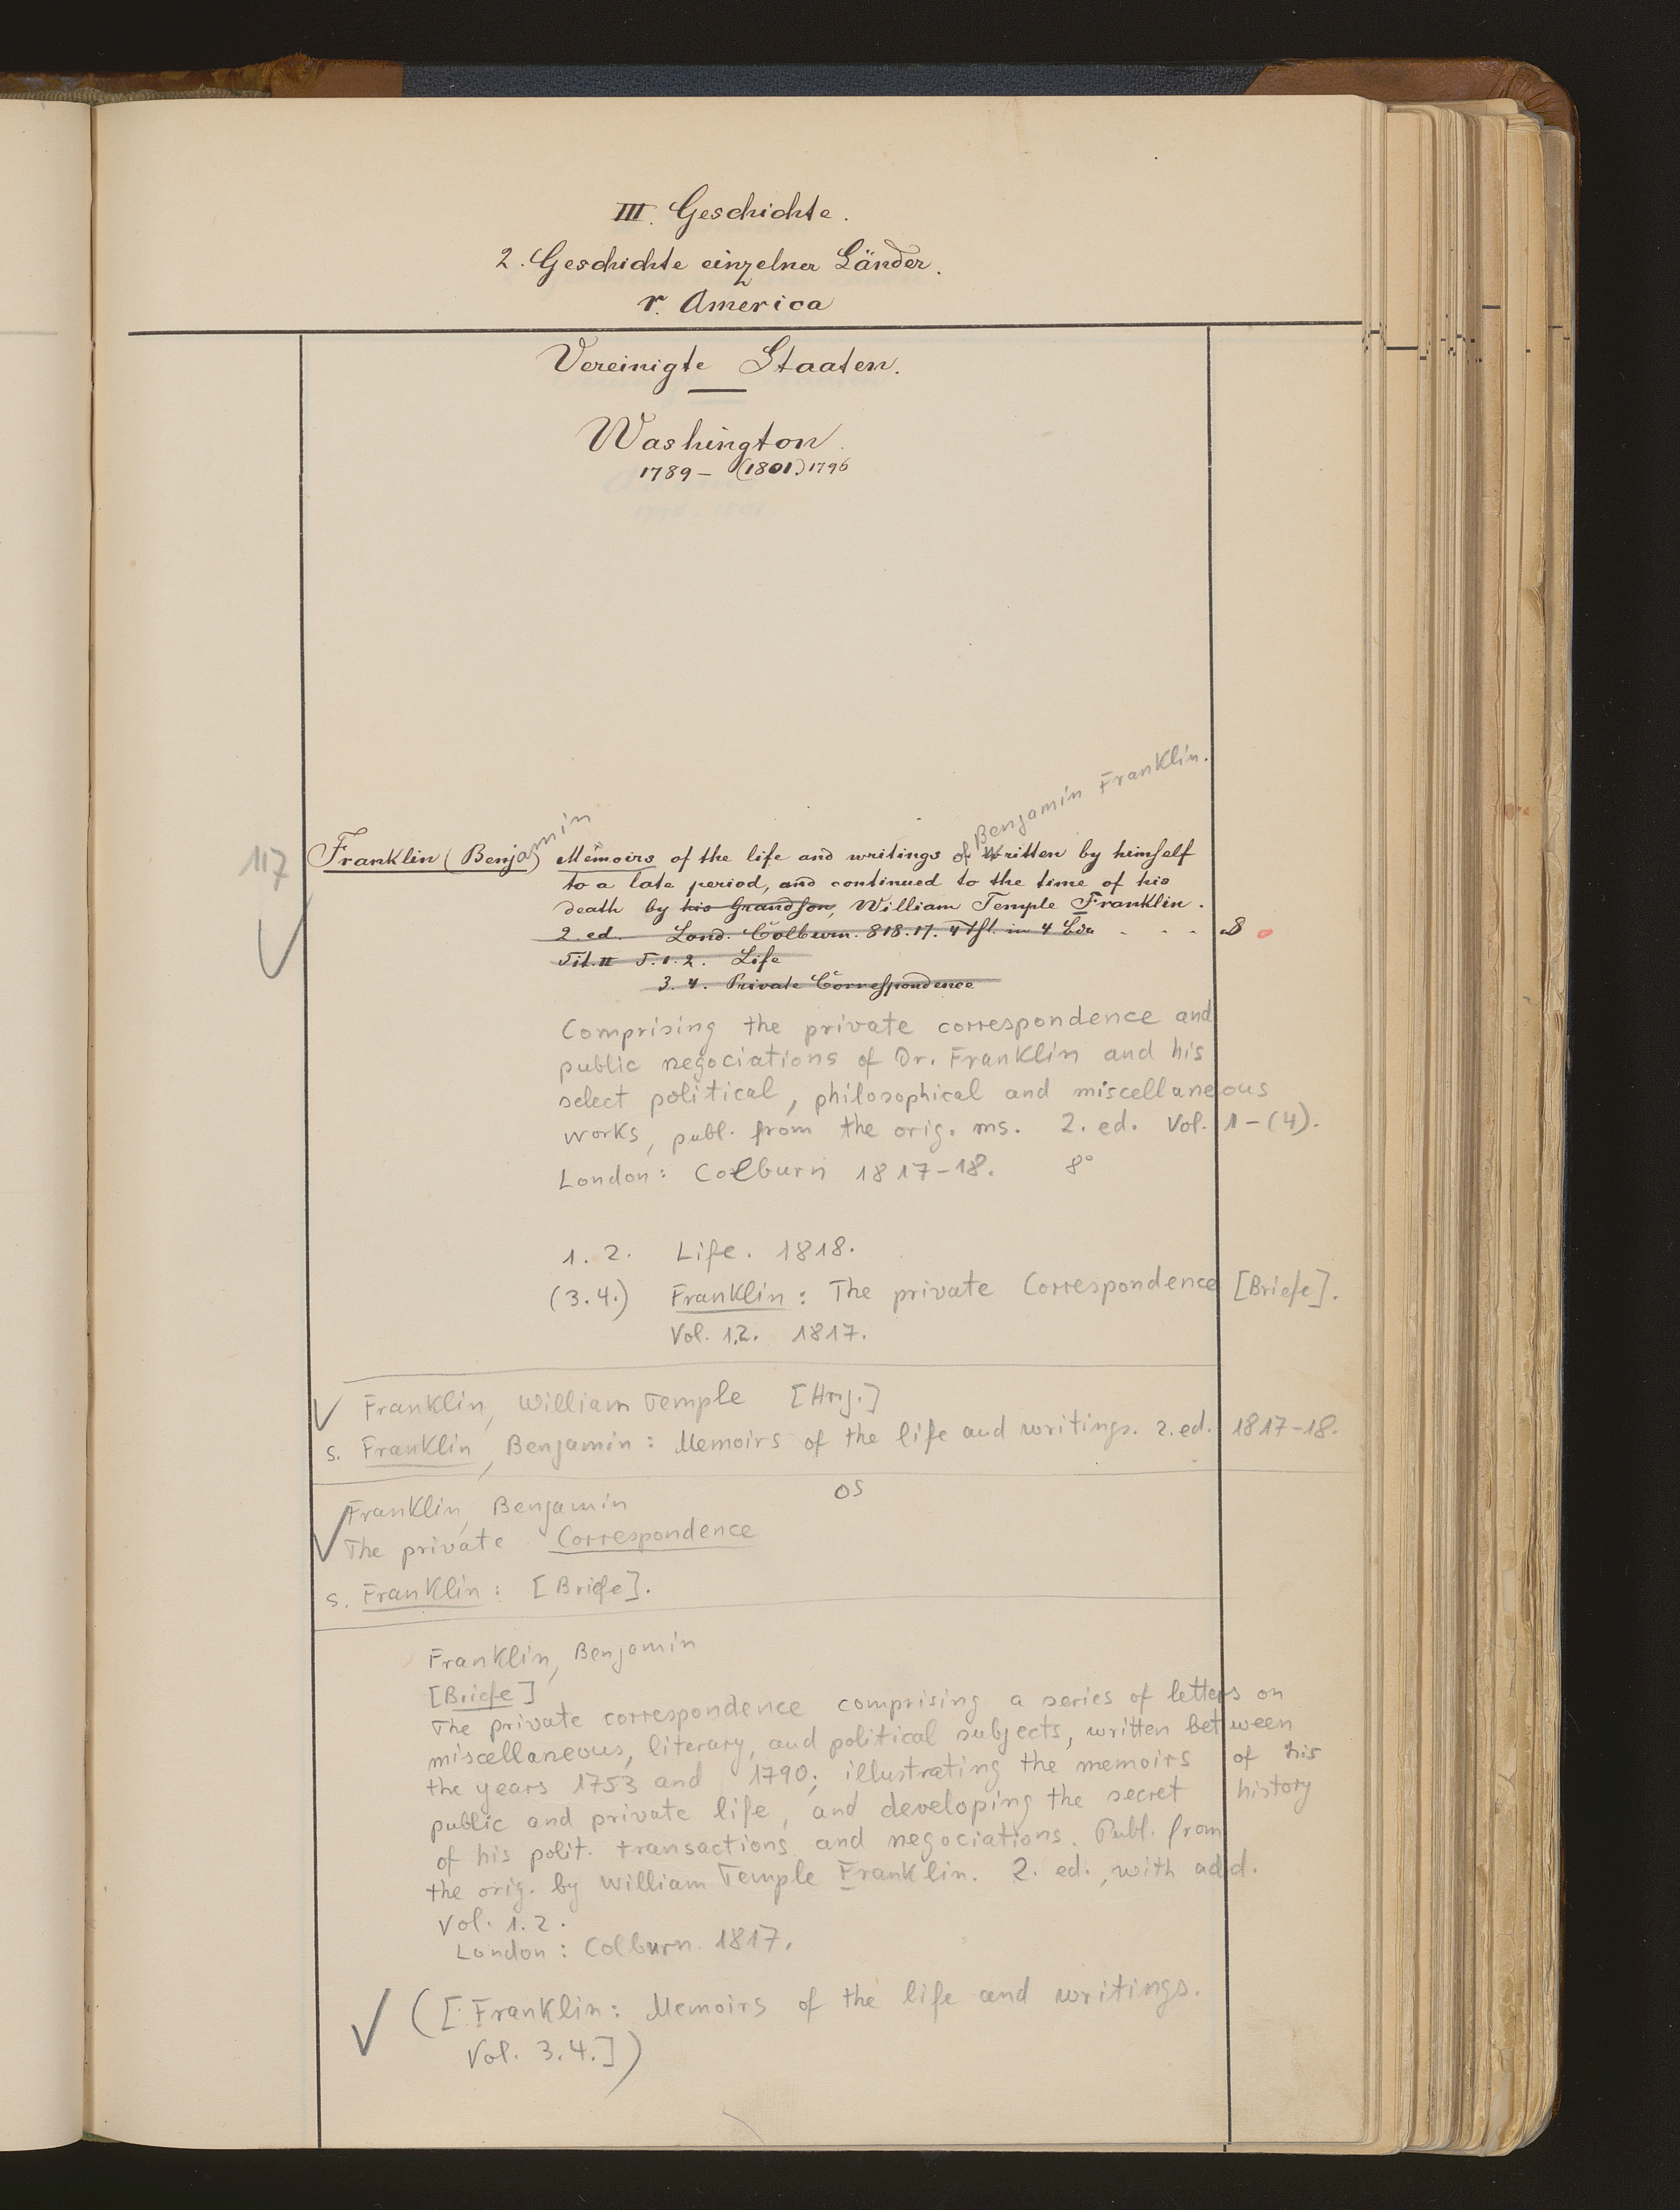 III. Geschichte.
2. Geschichte einzelner Länder.
r. America
Vereinigte Staaten.
Washington.
1789 – (1801) 1796
Benjamin Franklin.
117 Franklin (Benjamin) Memoirs of the life and writings of written by himself
to a late period, and continued to the time of his
death by his Grandson, William Temple Franklin.
2. ed. Lond. Colburn. 818. 17. 4 in 4 . . . 8
Tit. II T. 1. 2. Life
3. 4. Private Correspondence
Comprising the private correspondence and
public negociations of Dr. Franklin and his
select political, philosophical and miscellaneous
works, publ. from the orig. ms. 2. ed. Vol. 1-(4).
London: Colburn 1817-18. 8°
1. 2. Life. 1818.
(3.4.) Franklin: The private Correspondence [Briefe].
Vol. 1.2. 1817.
Franklin, William Temple [Hrsg.]
s. Franklin, Benjamin: Memoirs of the life and writings. 2. ed. 1817-18.
OS
Franklin, Benjamin
The private Correspondence
s. Franklin: [Briefe].
Franklin, Benjamin
[Briefe]
The private correspondence comprising a series of letters on
miscellaneous, literary, and political subjects, written between
the years 1753 and 1790; illustrating the memoirs of his
public and private life, and developing the secret history
of his polit. transactions and negociations. Publ. from
the orig. by William Temple Franklin. 2. ed., with add.
Vol. 1. 2.
London: Colburn 1817.
([Franklin: Memoirs of the life and writings.
Vol. 3.4.])